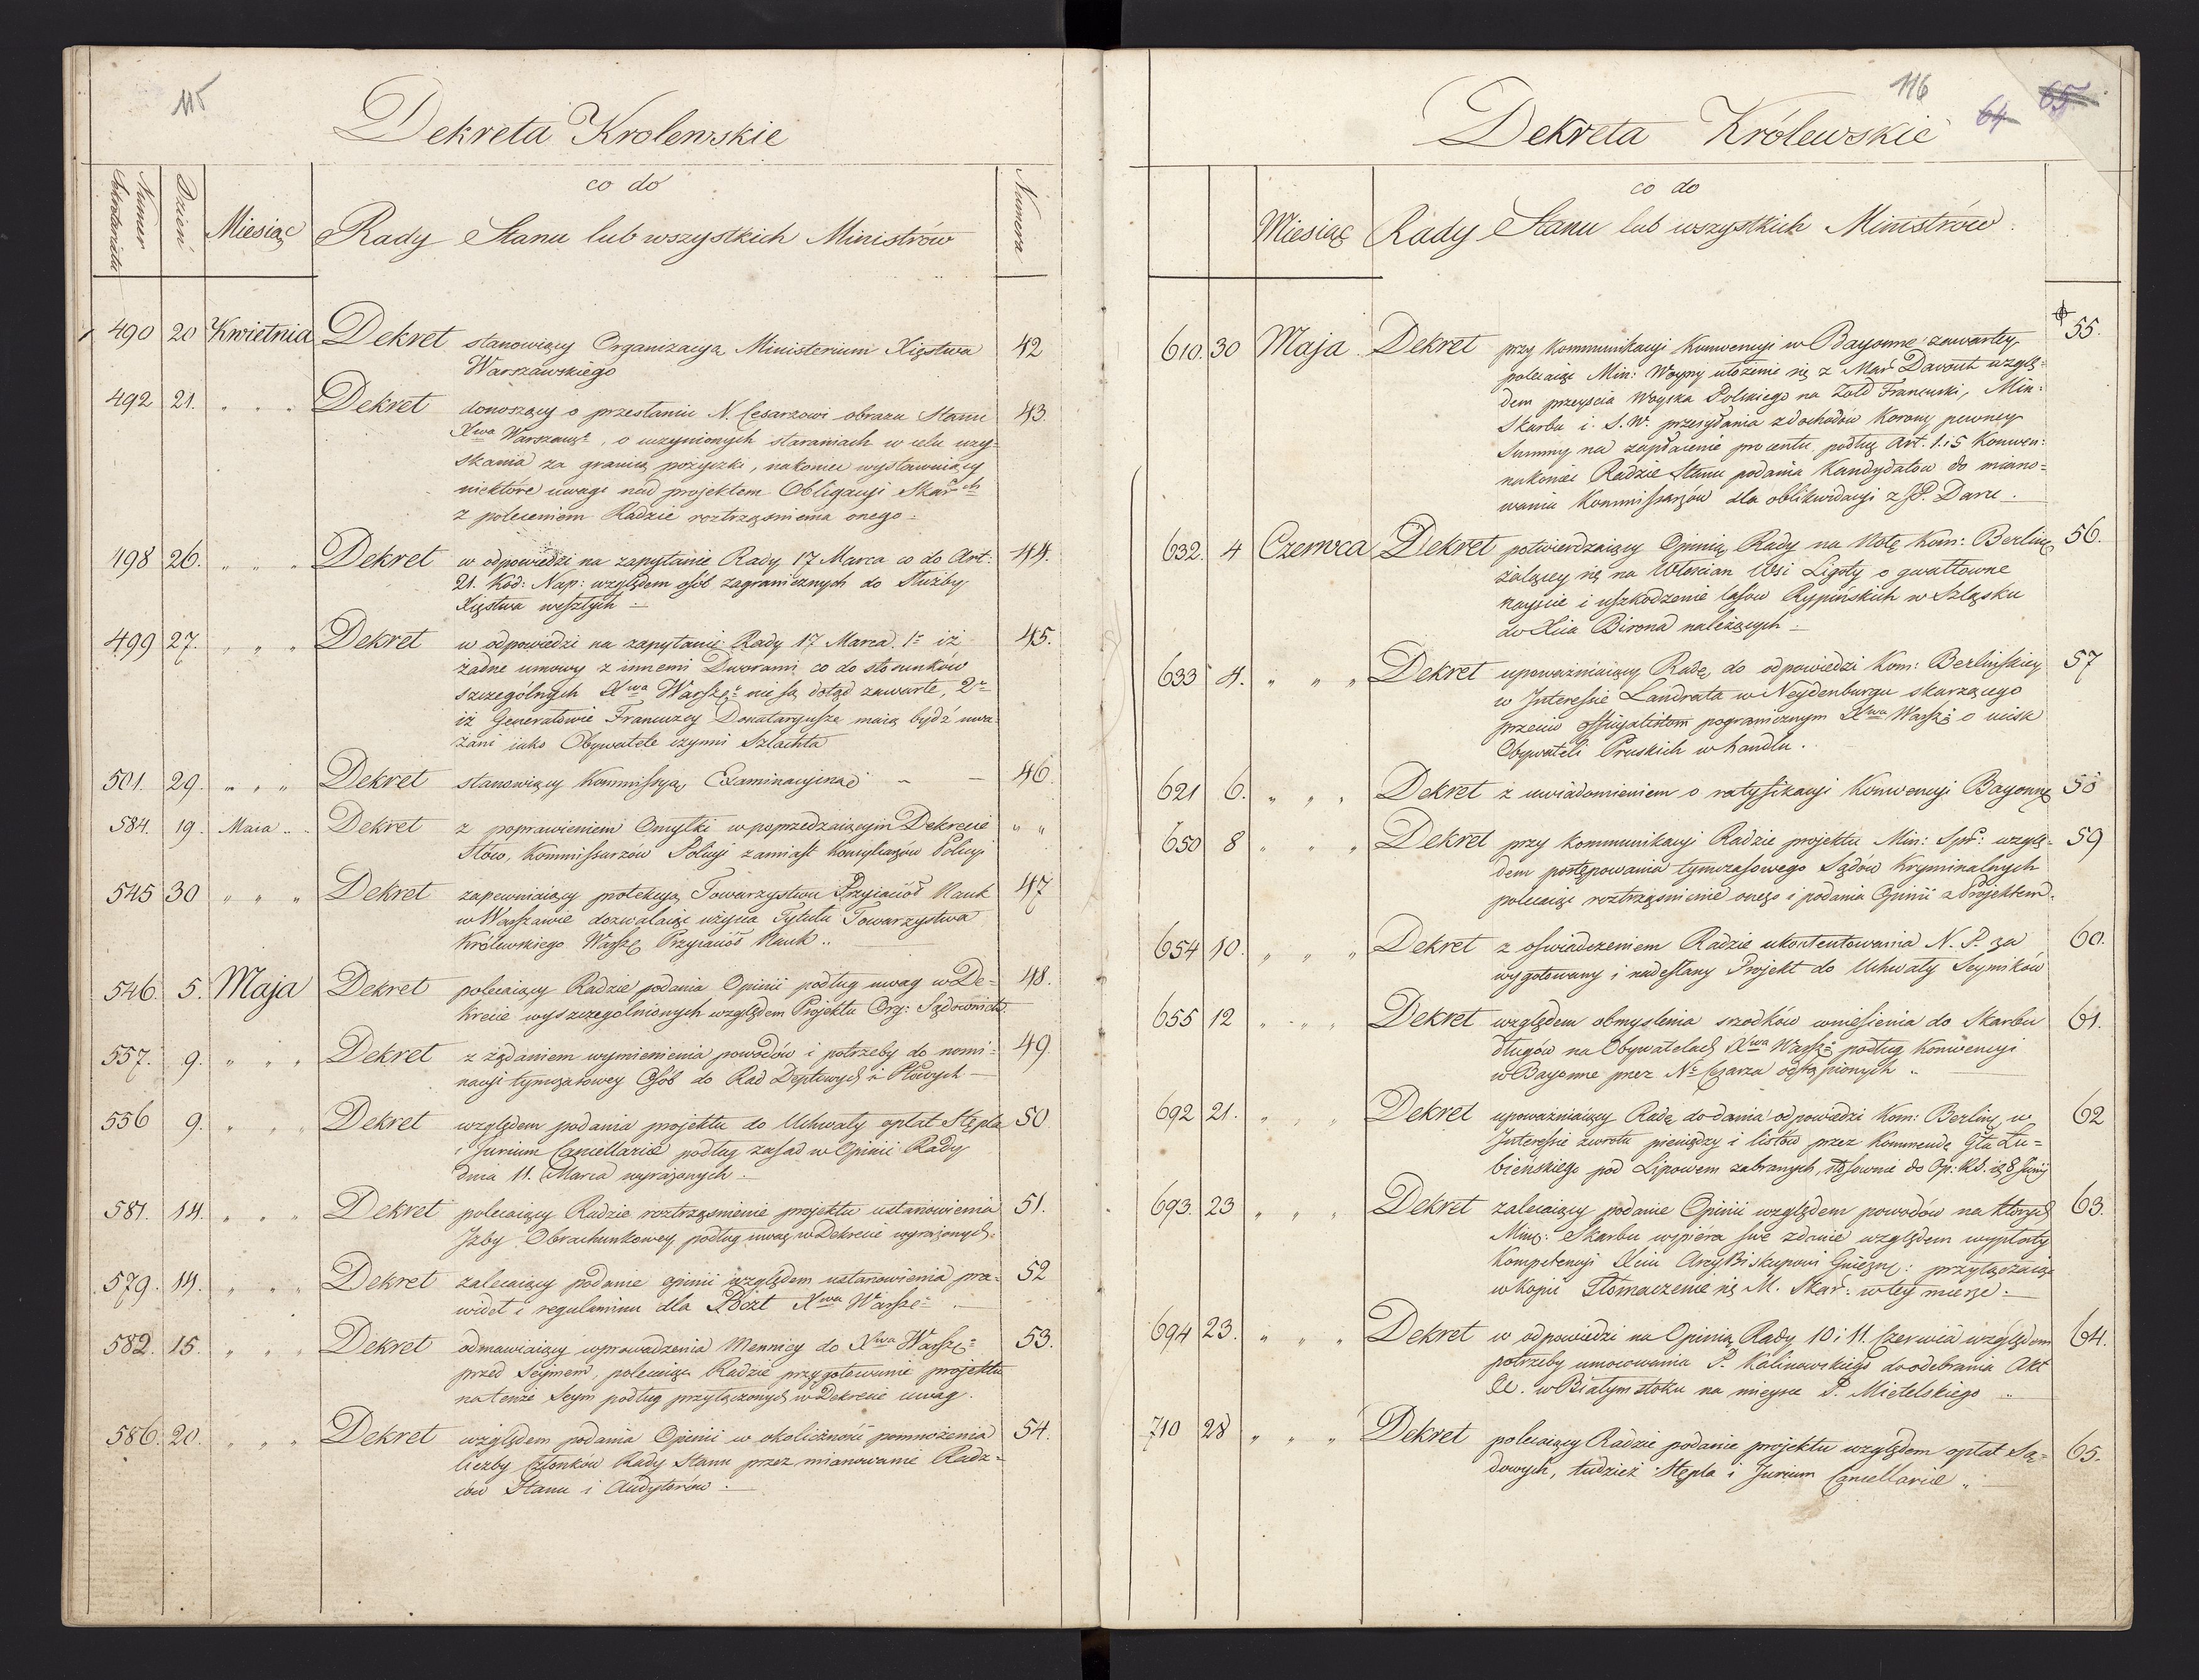 115
Dekreta Krolewskie
Numer Sekretariatu
Dzień
Miesiąc
co do
Rady Stanu lub wszystkich Ministrów
Numera
490 20 Kwietnia Dekret stanowiący Organizacyą Ministerium Xięstwa 42
Warszawskiego
492 21. " " Dekret donoszący o przesłaniu N. Cesarzowi obrazu Stanu 43.
Xwa Warszawgo, o uczynionych staraniach w celu uzy-
skania za granicą pożyczki, nakoniec wystawuiący
niektóre uwagi nad projektem Obligacyi Skarch
z poleceniem Radzie roztrząśnienia onego.
498 26. " " " Dekret w odpowiedzi na zapytanie Rady 17 Marca co do Art: 44.
21. Kod: Nap: względem osób zagranicznych do Służby
Xięstwa weszłych
499 27. " " " Dekret w odpowiedzi na zapytanie Rady 17 Marca. 1o iż 45.
żadne umowy z innemi Dworami co do stosunków
szczególnych Xwa Warszgo nie są dotąd zawarte, 2o
iż Generałowie Francuzcy Donataryusze maią bydź uwa-
żani iako Obywatele czynni Szlachta
501. 29. " " " Dekret stanowiący Kommissyą Examinacyiną 46.
584. 19. Maia " Dekret z poprawieniem Omyłki w poprzedzaiącym Dekrecie " "
Słów, Kommissarzów Policyi zamiast Konsyliarzów Policyi
545 30 " " " Dekret zapewniaiący protekcyą Towarzystwu Przyiaciół Nauk 47
w Warszawie dozwalaiąc użycia Tytułu Towarzystwa
Królewskiego Warszgo Przyiaciół Nauk
546. 5. Maja Dekret polecaiący Radzie podania Opinii podług uwag w De- 48.
krecie wyszczególnionych względem Projektu Org: Sądownictwa
557. 9. " " " Dekret z żądaniem wymienienia powodów i potrzeby do nomi- 49.
nacyi tymczasowey Osób do Rad Deptowych i Ptowych
556 9. " " " Dekret względem podania projektu do Uchwały opłat Stępla 50
i Jurium Cancellariae podług zasad w Opinii Rady
dnia 11. Marca wyrażonych
581. 14. " " " Dekret polecaiący Radzie roztrząśnienie projektu ustanowienia 51.
Izby Obrachunkowey, podług uwag w Dekrecie wyrażonych
579. 14. " " " Dekret zalecaiący podanie opinii względem ustanowienia pra- 52
wideł i regulaminu dla Poczt Xwa Warszgo
582. 15. " " " Dekret odmawiaiący wprowadzenia Mennicy do Xwa Warszgo 53.
przed Seymem, polecaiąc Radzie przygotowanie projektu
na tenże Seym podług przyłączonych w Dekrecie uwag.
586. 20. " " " Dekret względem podania Opinii w okoliczności pomnożenia 54.
liczby Członków Rady Stanu przez mianowanie Radz-
ców Stanu i Audytorów
116
64 65
Dekreta Królewskie
co do
Miesiąc
Rady Stanu lub wszystkich Ministrów
610. 30 Maja Dekret przy kommunikacyi Konwencyi w Bayonne zawartey 55.
polecaiąc Min: Woyny ułożenie się z Mar. Davout wzglę-
dem przeyścia Woyska Polskiego na Żołd Francuski, Min:
Skarbu i S. W. przesyłania z dochodów Korony pewney
Summy na zapłacenie procentu podług Art. 1. i 5 Konwen:
nakoniec Radzie Stanu podania Kandydatów do miano-
wania Kommissarzów dla oblikwidacyi z JP. Daru.
632. 4 Czerwca Dekret potwierdzaiący Opinią Rady na Notę Kom: Berlińs. 56.
żalącey się na Włościan Wsi Ligoty o gwałtowne
nayście i uszkodzenie lasów Rypińskich w Szląsku
do Xcia Birona należących
633 4. " " " Dekret upoważniaiący Radę do odpowiedzi Kom: Berlińskiey 57
w Interessie Landrata w Neydenburgu skarżącego
przeciw officyalistom pogranicznym Xwa Warszgo o ucisk
Obywateli Pruskich w handlu.
621 6. " " " Dekret z uwiadomieniem o ratyfikacyi Konwencyi Bayonney 58
650 8 " " " Dekret przy kommunikacyi Radzie projektu Min: Spr: wzglę- 59
dem postępowania tymczasowego Sądów Kryminalnych
polecaiąc roztrząśnienie onego i podania Opinii z Projektem.
654 10. " " " Dekret z oświadczeniem Radzie ukontentowania N. P. za 60.
wygotowany i nadesłany Projekt do Uchwały Seymików
655 12 " " " Dekret względem obmyślenia środków wniesienia do Skarbu 61.
długów na Obywatelach Xwa Warszgo podług Konwencyi
w Bayonne przez No Cesarza odstąpionych
692 21. " " " Dekret upoważniaiący Radę do dania odpowiedzi Kom: Berlińs. w 62
Interessie zwrotu pieniędzy i listów przez Kommendę Gła Łu-
bieńskiego pod Lipowem zabranych, stosownie do Op: R.S. z 8 Junij
693. 23 " " " Dekret zalecaiący podanie Opinii względem powodów na których 63.
Min: Skarbu wspiera swe zdanie względem wypłaty
Kompetencyi Xciu ArcyBiskupowi Gnieźn: przyłączaiąc
w kopii Tłomaczenie się M. Skar: w tey mierze.
694 23. " " " Dekret w odpowiedzi na Opinią Rady 10 i 11. Czerwca względem 64.
potrzeby umocowania P. Kalinowskiego do odebrania Akt
w Białymstoku na mieysce P. Mielelskiego
710 28 " " " Dekret polecaiący Radzie podanie projektu względem opłat Są- 65.
dowych, tudzież Stępla i Jurium Cancellariae